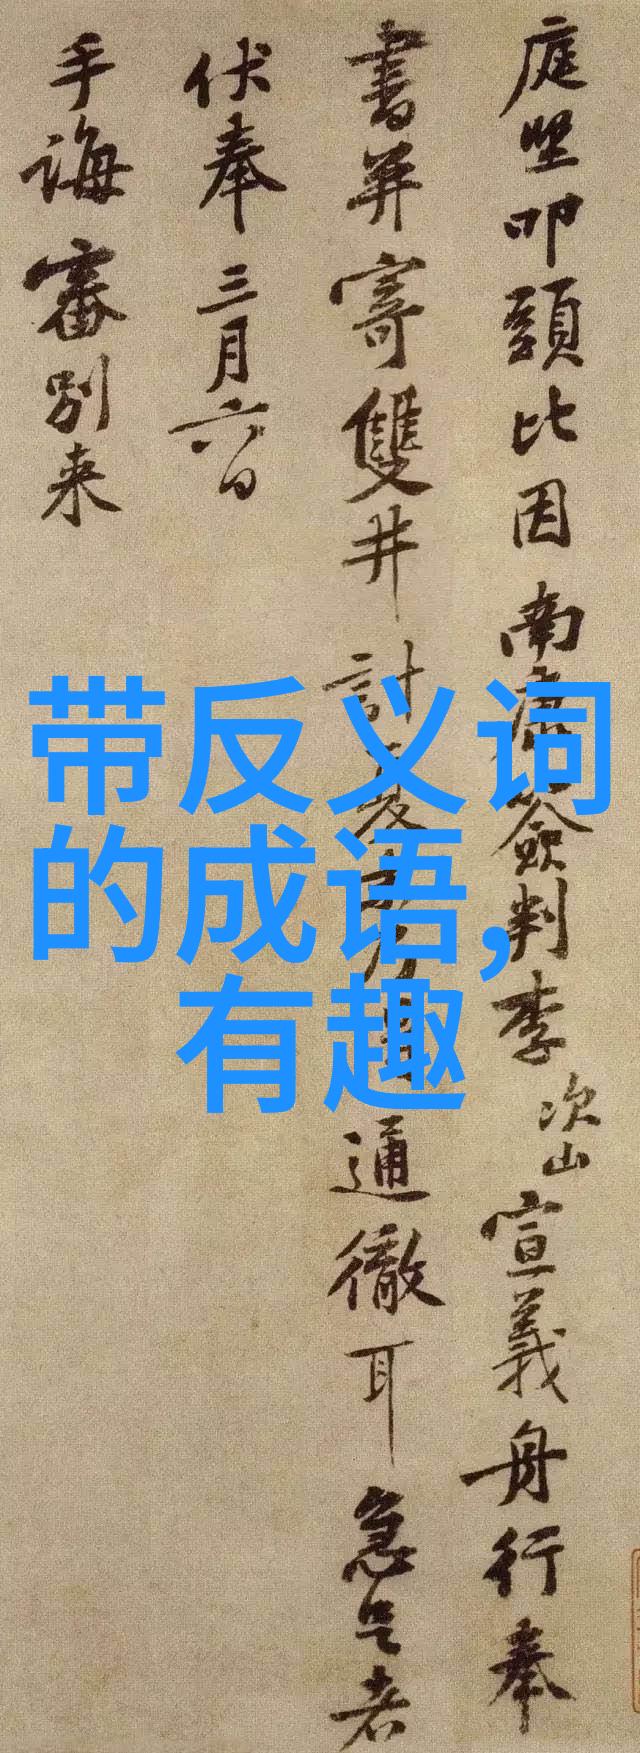 庭坚叩頭比因南康簽判李次山宣義舟行奉
書并寄雙井計
通徹耳急足者
伏奉三月六日
手誨審別来
带反义词
的成语，
有趣